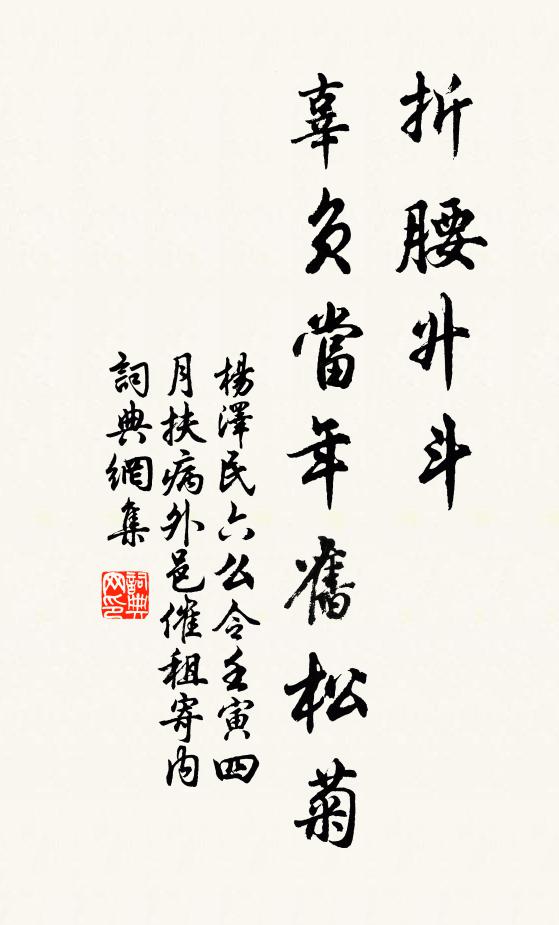 折腰升斗
辜負當年舊松菊
楊澤民六么令壬寅四
月扶病外邑催租寄内
詞典網集
詞典
网印